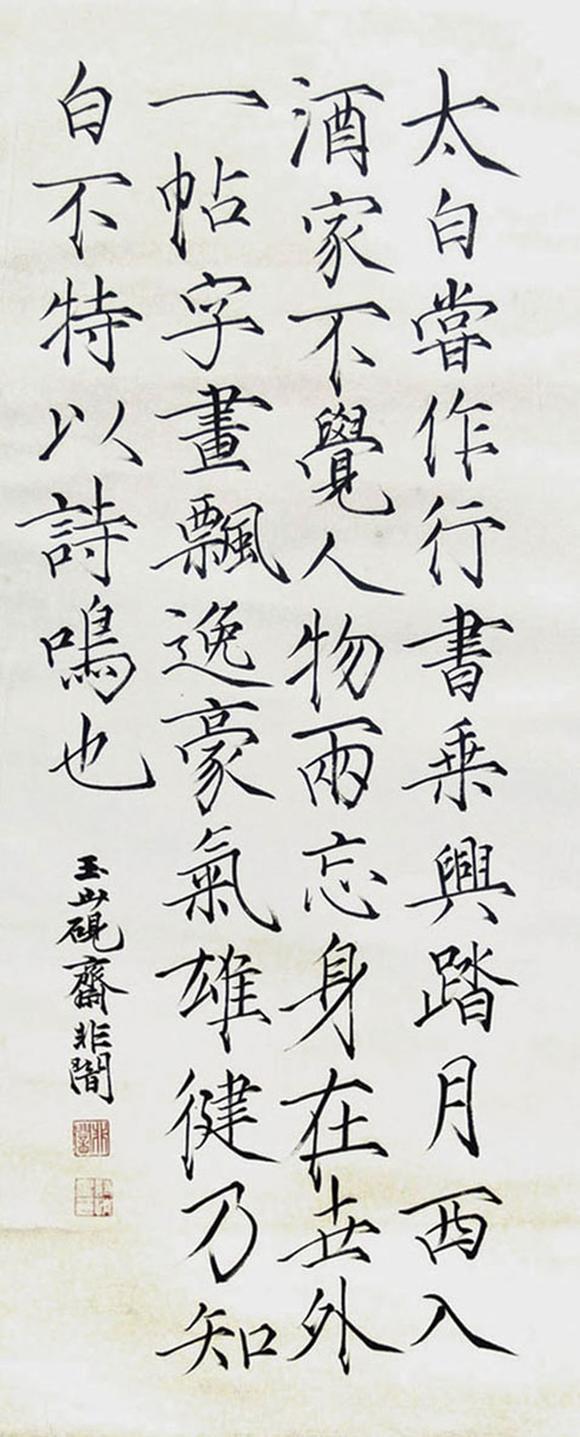 太白嘗作行書乗興踏月西入
酒家不覺人物兩忘身在世外
一帖字畫飄逸豪氣雄健乃知
白不特以詩鳴也
玉山硯齋非闇